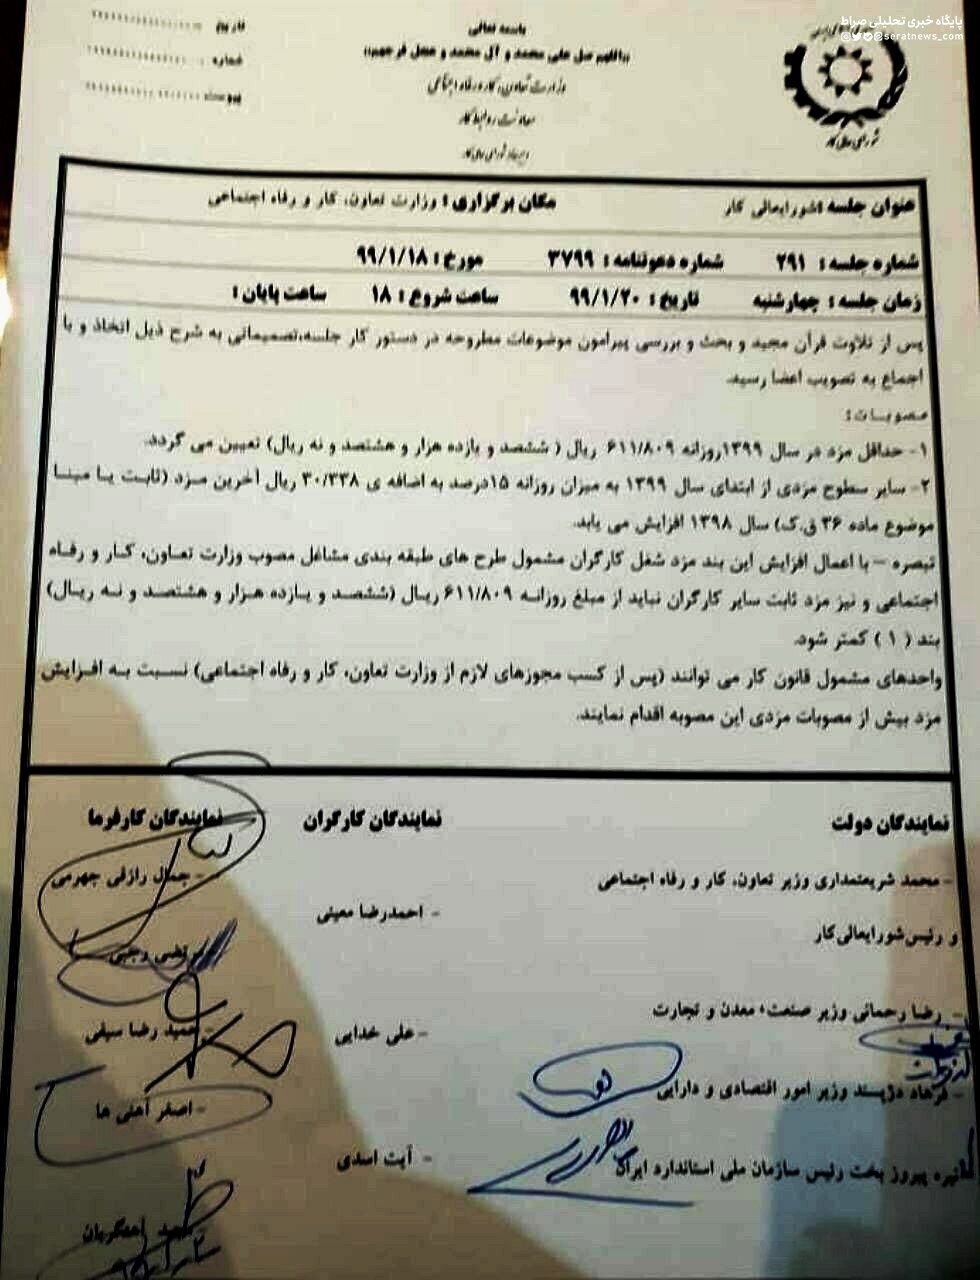 پایگاه خبری تحلیلی صراط
@seratnews_com
باسمه تعالی
«اللهم صل علی محمد و آل محمد و عجل فرجهم»
تاریخ
شماره
پیوست
وزارت تعاون، کار و رفاه اجتماعی
معاونت روابط کار
دبیرخانه شورای عالی کار
شورای عالی کار
عنوان جلسه :شورایعالی کار مکان برگزاری : وزارت تعاون، کار و رفاه اجتماعی
شماره جلسه : ۲۹۱ شماره دعوتنامه : ۳۷۹۹ مورخ : ۹۹/۱/۱۸
زمان جلسه : چهارشنبه تاریخ : ۹۹/۱/۲۰ ساعت شروع : ۱۸ ساعت پایان :
پس از تلاوت قرآن مجید و بحث و بررسی پیرامون موضوعات مطروحه در دستور کار جلسه،تصمیماتی به شرح ذیل اتخاذ و با
اجماع به تصویب اعضا رسید.
مصوبات:
۱- حداقل مزد در سال ۱۳۹۹روزانه ۶۱۱/۸۰۹ ریال ( ششصد و یازده هزار و هشتصد و نه ریال) تعیین می گردد.
۲- سایر سطوح مزدی از ابتدای سال ۱۳۹۹ به میزان روزانه ۱۵درصد به اضافه ی ۳۰/۳۳۸ ریال آخرین مزد (ثابت یا مبنا
موضوع ماده ۳۶ ق.ک) سال ۱۳۹۸ افزایش می یابد.
تبصره – با اعمال افزایش این بند مزد شغل کارگران مشمول طرح های طبقه بندی مشاغل مصوب وزارت تعاون، کار و رفاه
اجتماعی و نیز مزد ثابت سایر کارگران نباید از مبلغ روزانه ۶۱۱/۸۰۹ ریال (ششصد و یازده هزار و هشتصد و نه ریال)
بند ( ۱ ) کمتر شود.
واحدهای مشمول قانون کار می توانند (پس از کسب مجوزهای لازم از وزارت تعاون، کار و رفاه اجتماعی) نسبت به افزایش
مزد بیش از مصوبات مزدی این مصوبه اقدام نمایند.
نمایندگان دولت نمایندگان کارگران نمایندگان کارفرما
- محمد شریعتمداری وزیر تعاون، کار و رفاه اجتماعی
و رئیس‌شورایعالی‌کار
- احمدرضا معینی
- جمال رازقی جهرمی
- رضا رحمانی وزیر صنعت، معدن و تجارت
- علی خدایی
حمید رضا سیفی
- فرهاد دژپسند وزیر امور اقتصادی و دارایی
- اصغر آهنی ها
نیره پیروز بخت رئیس سازمان ملی استاندارد ایران
- آیت اسدی